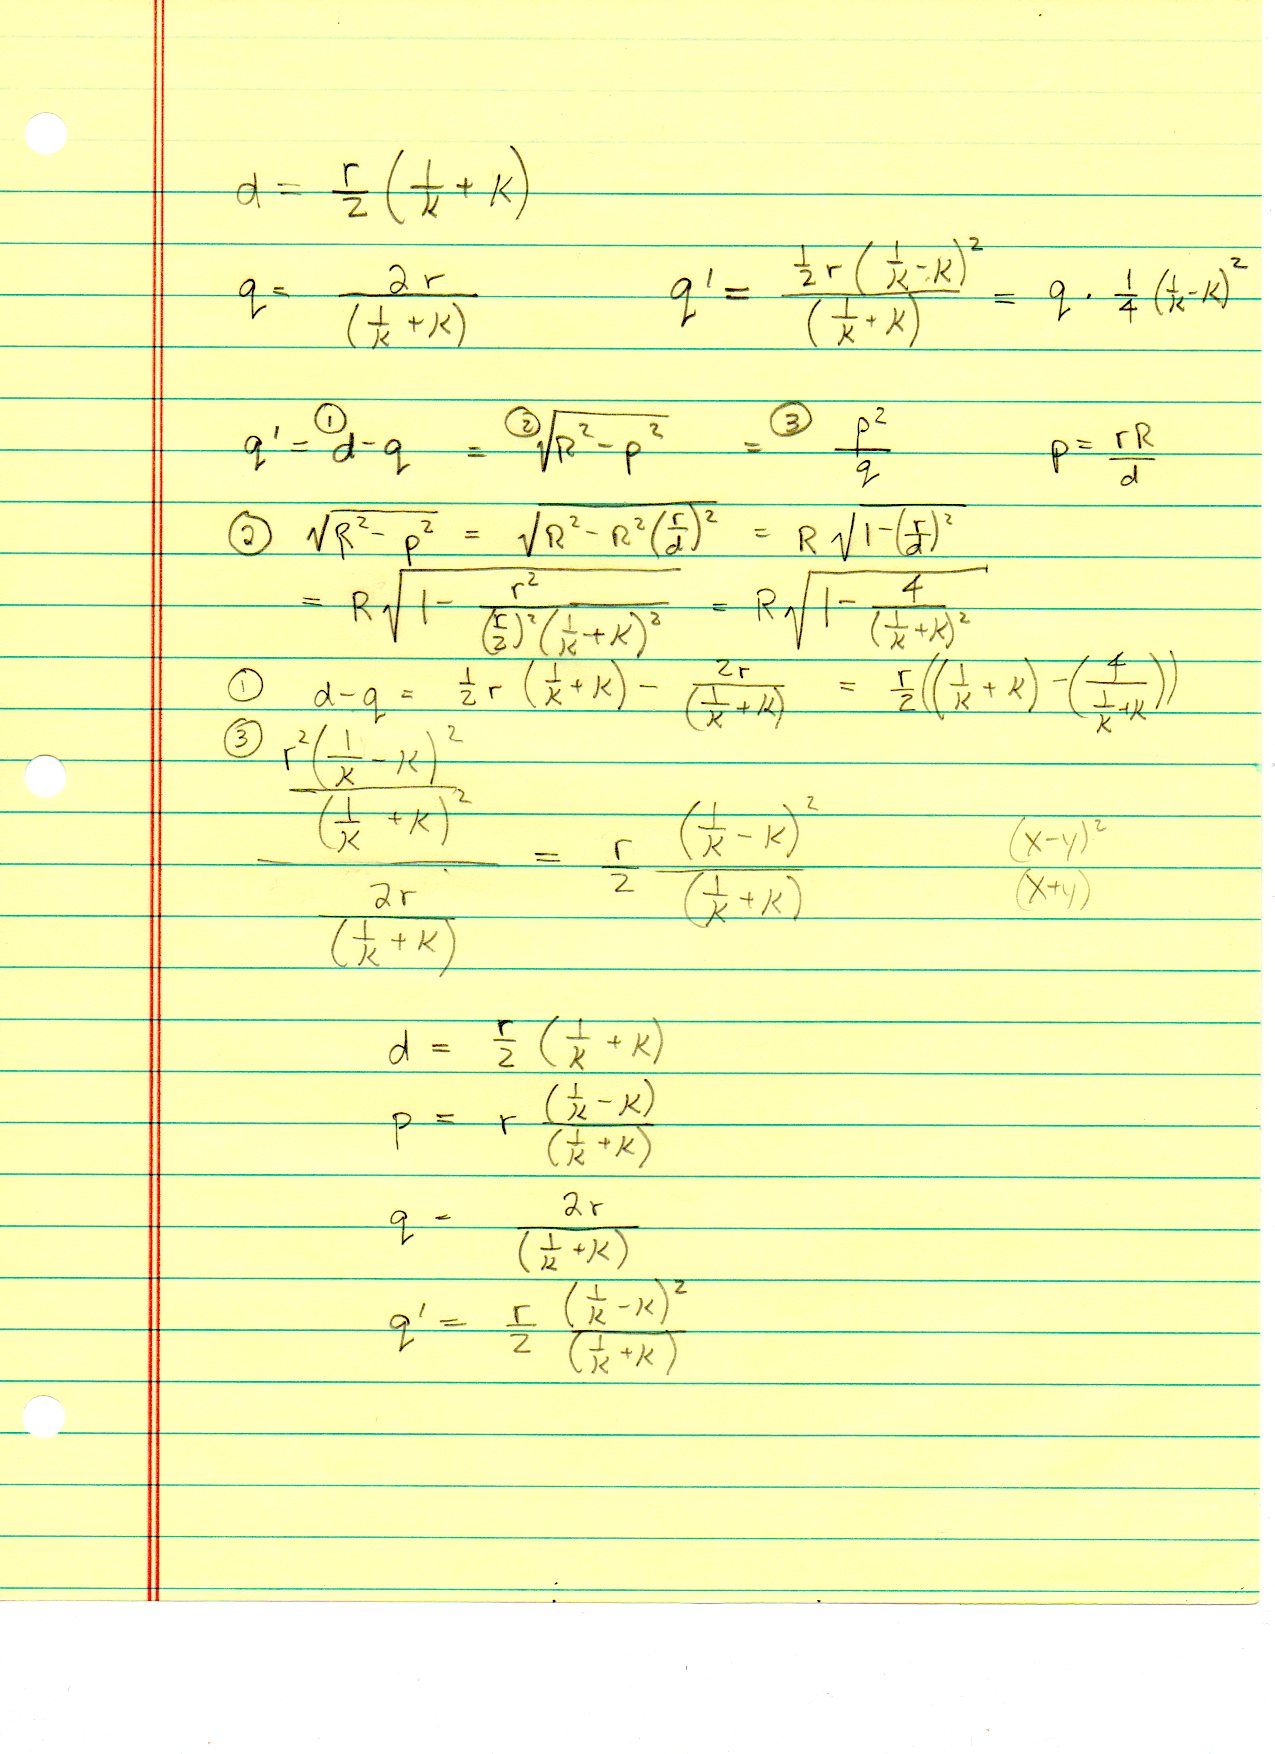 d = r/2 (1/k + k)
q = 2r/(1/k + k)   q' = ½ r (1/k - k)²/(1/k + k) = q · ¼ (1/k - k)²
q' = ① d - q = ② √(R² - p²) = ③ p²/q   p = rR/d
② √(R² - p²) = √(R² - R² (r/d)²) = R √(1 - (r/d)²)
= R √(1 - r²/((r/2)² (1/k + k)²)) = R √(1 - 4/(1/k + k)²)
① d - q = ½ r (1/k + k) - 2r/(1/k + k) = r/2 ((1/k + k) - (4/(1/k + k)))
③ (r² (1/k - k)²/(1/k + k)²)/(2r/(1/k + k)) = r/2 (1/k - k)²/(1/k + k)   (x-y)²/(x+y)
d = r/2 (1/k + k)
p = r (1/k - k)/(1/k + k)
q - 2r/(1/k + k)
q' = r/2 (1/k - k)²/(1/k + k)